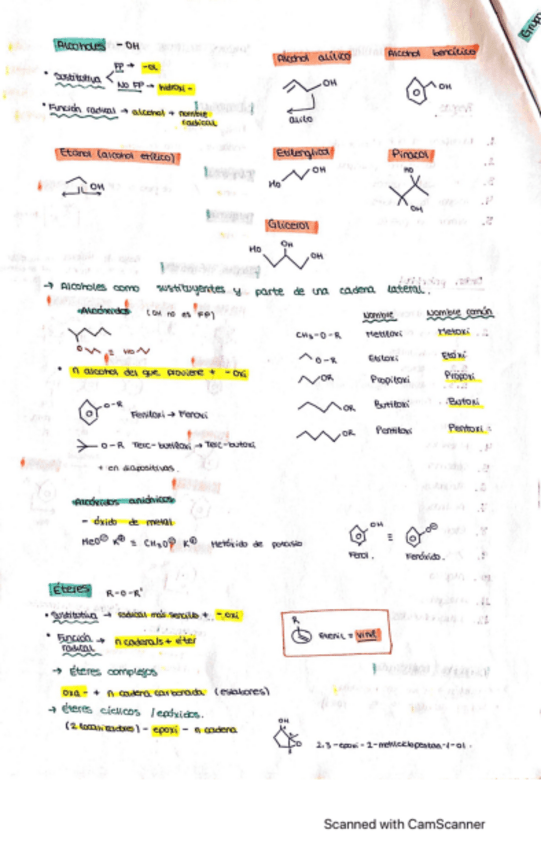 Alcoholes - OH
· Sustitutiva
FP → -ol
NO FP → hidroxi -
· Función radical → alcohol + nombre radical
Alcohol alílico
OH
alilo
Alcohol bencílico
OH
Etanol (alcohol etílico)
OH
Etilenglicol
HO
OH
Pinacol
HO
OH
Glicerol
HO
OH
OH
→ Alcoholes como sustituyentes y parte de una cadena lateral.
(OH no es FP)
· n alcohol del que proviene + -oxi
O-R
Feniloxi → Fenoxi
O-R Terc-butiloxi → Terc-butoxi
+ en diapositivas.
Nombre
Nombre común
CH3-O-R Metiloxi Metoxi
O-R Etiloxi Etoxi
OR Propiloxi Propoxi
OR Butiloxi Butoxi
OR Pentiloxi Pentoxi
Alcóxidos aniónicos
- óxido de metal
MeO⊖ K⊕ ≡ CH3O⊖ K⊕ Metóxido de potasio
OH
≡
O⊖
Fenol.
Fenóxido.
Éteres R-O-R'
· Sustitutiva → radical más sencillo + -oxi
· Función radical → n cadenas + éter
R
Etenil = vinil
→ éteres complejos
oxa- + n cadena carbonada (eslabones)
→ éteres cíclicos / epóxidos.
(2 localizadores) - epoxi - n cadena
OH
O
2,3-epoxi-2-metilciclopentan-1-ol.
Scanned with CamScanner